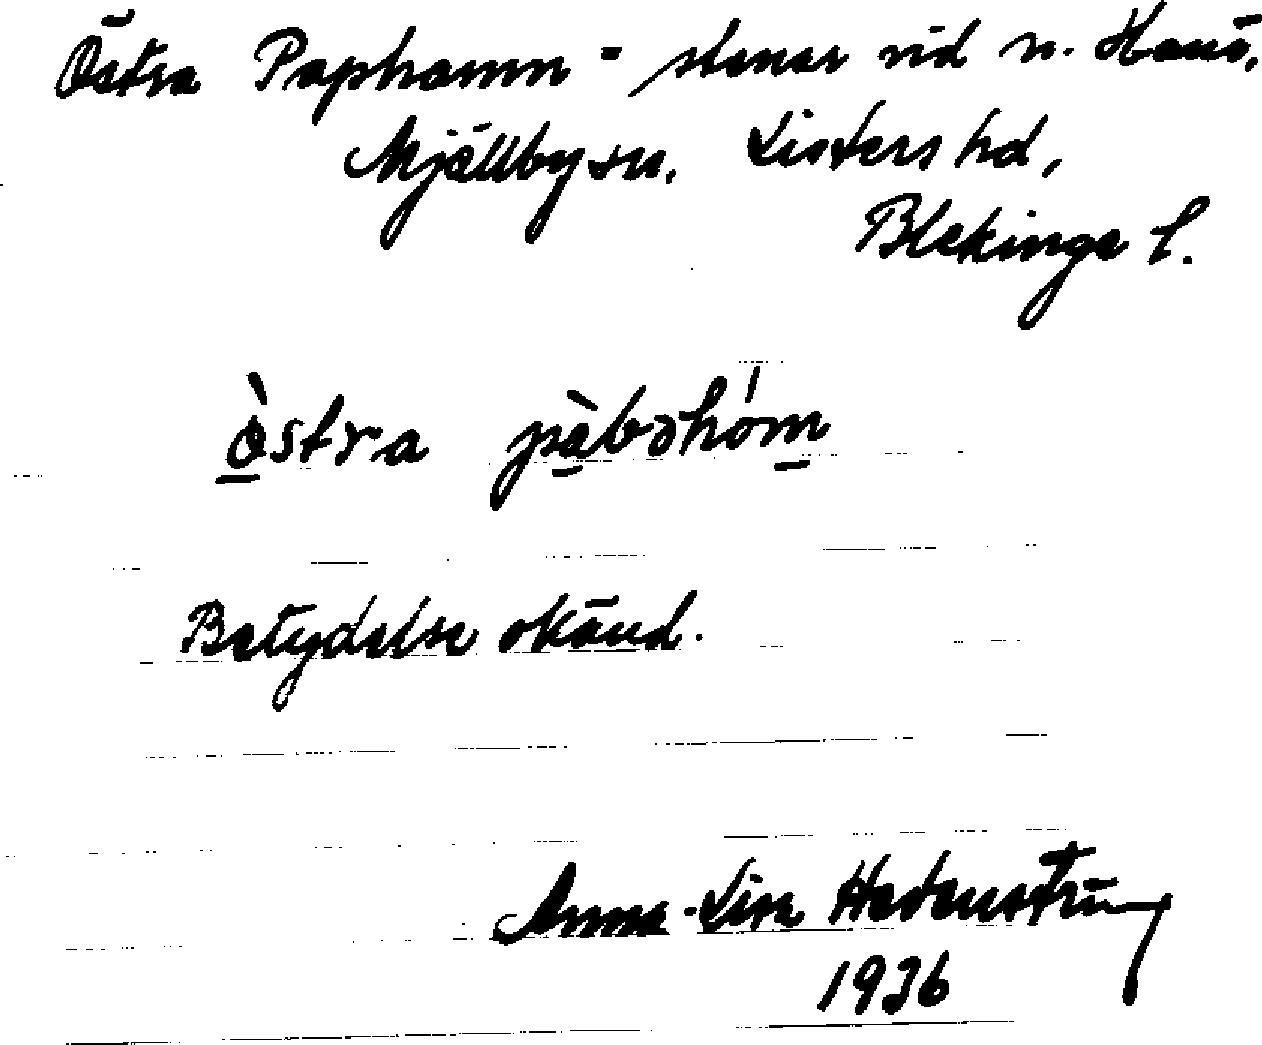 Östra Paphamn - stenar vid n. Hanö,
Mjällby sn. Listers hd,
Blekinge l.
òstra pàbohóm
Betydelse okänd.
Anna-Lisa Hedenström
1936